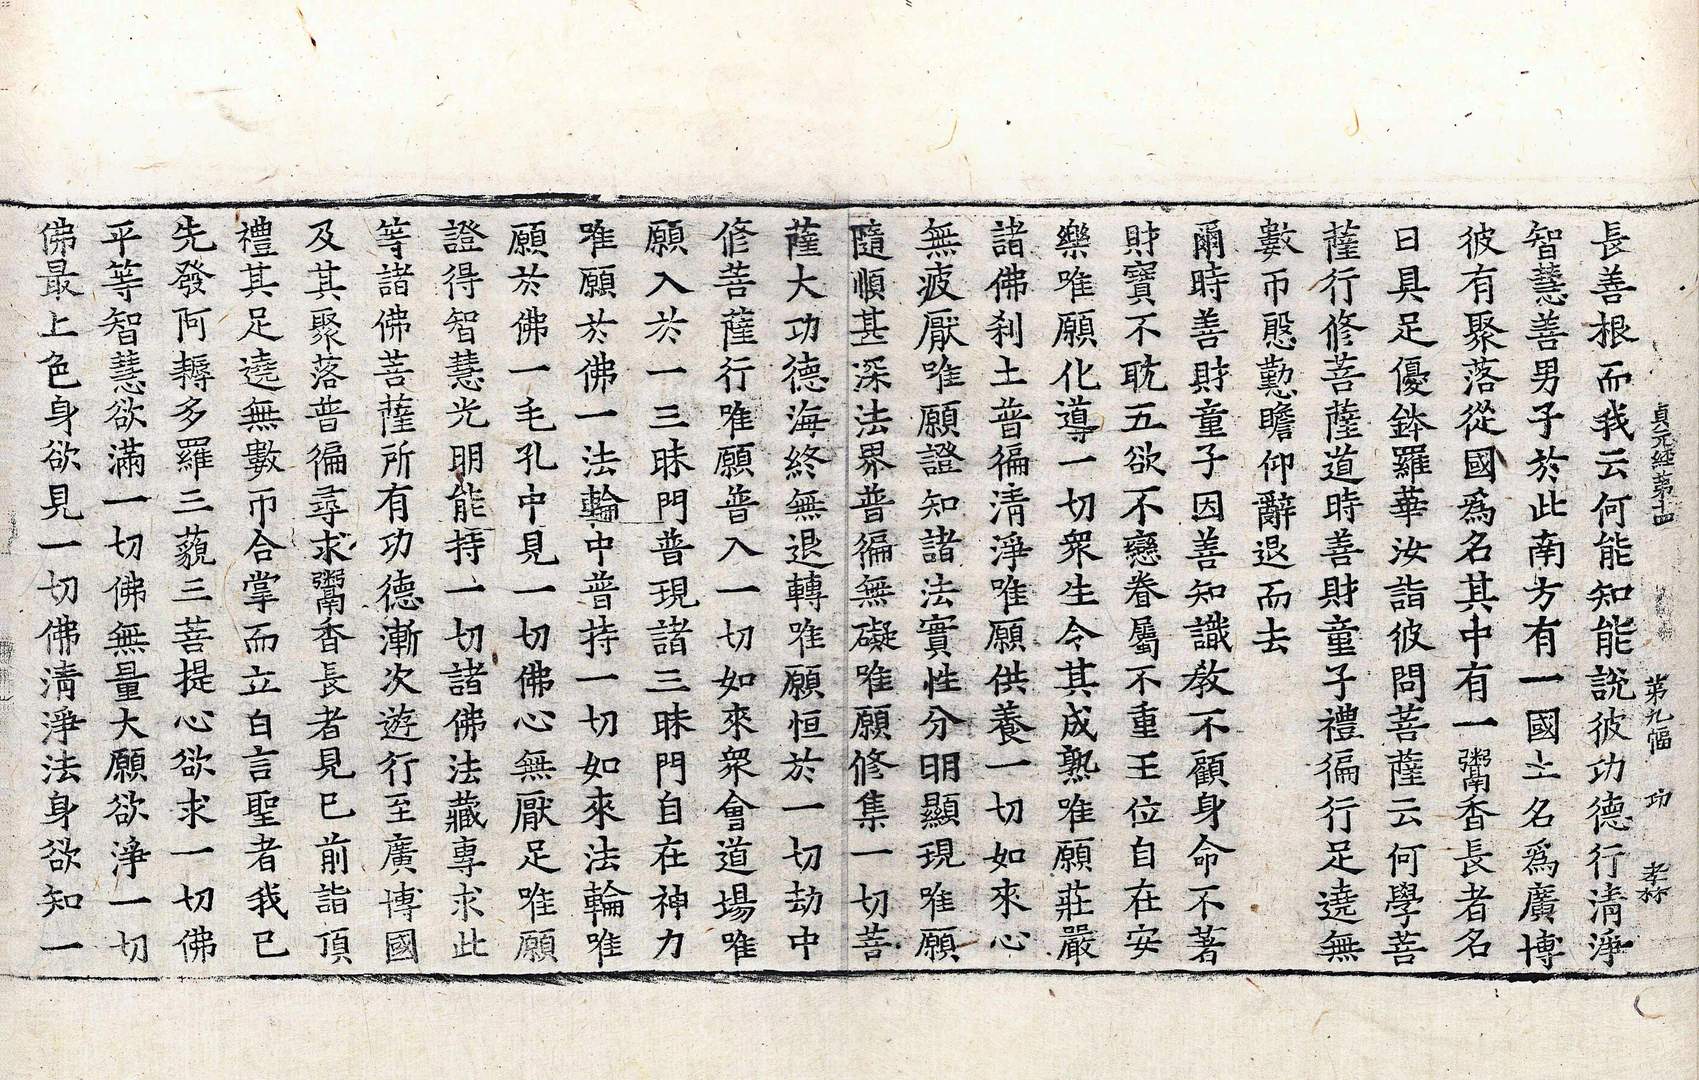 貞元經第十四 第九幅 功 孝㷠
長善根而我云何能知能說彼功德行清淨
智慧善男子於此南方有一國土名爲廣博
彼有聚落從國爲名其中有一鬻香長者名
曰具足優鉢羅華汝詣彼問菩薩云何學菩
薩行修菩薩道時善財童子禮徧行足遶無
數帀慇懃瞻仰辭退而去
爾時善財童子因善知識敎不顧身命不著
財寶不耽五欲不戀眷屬不重王位自在安
樂唯願化導一切衆生令其成熟唯願莊嚴
諸佛刹土普徧清淨唯願供養一切如來心
無疲厭唯願證知諸法實性分明顯現唯願
隨順甚深法界普徧無礙唯願修集一切菩
薩大功德海終無退轉唯願恒於一切劫中
修菩薩行唯願普入一切如來衆會道場唯
願入於一三昧門普現諸三昧門自在神力
唯願於佛一法輪中普持一切如來法輪唯
願於佛一毛孔中見一切佛心無厭足唯願
證得智慧光明能持一切諸佛法藏專求此
等諸佛菩薩所有功德漸次遊行至廣博國
及其聚落普徧尋求鬻香長者見已前詣頂
禮其足遶無數帀合掌而立白言聖者我已
先發阿耨多羅三藐三菩提心欲求一切佛
平等智慧欲滿一切佛無量大願欲淨一切
佛最上色身欲見一切佛清淨法身欲知一